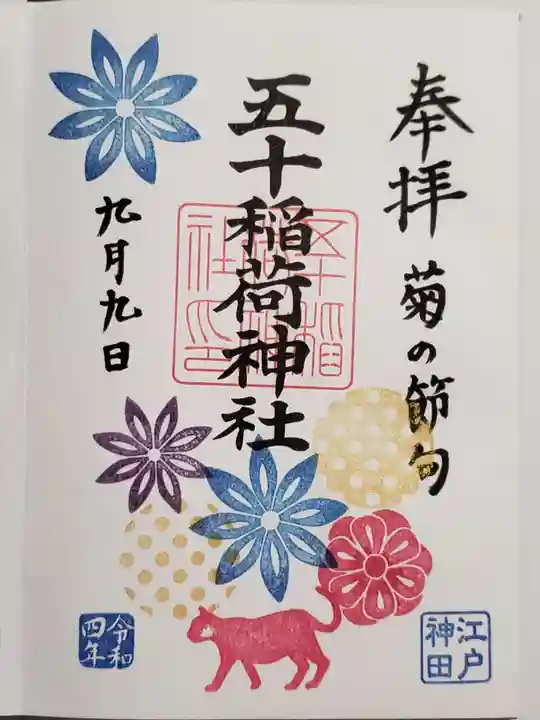 奉拝
菊の節句
五十稲荷神社
九月九日
令和
四年
江戸
神田